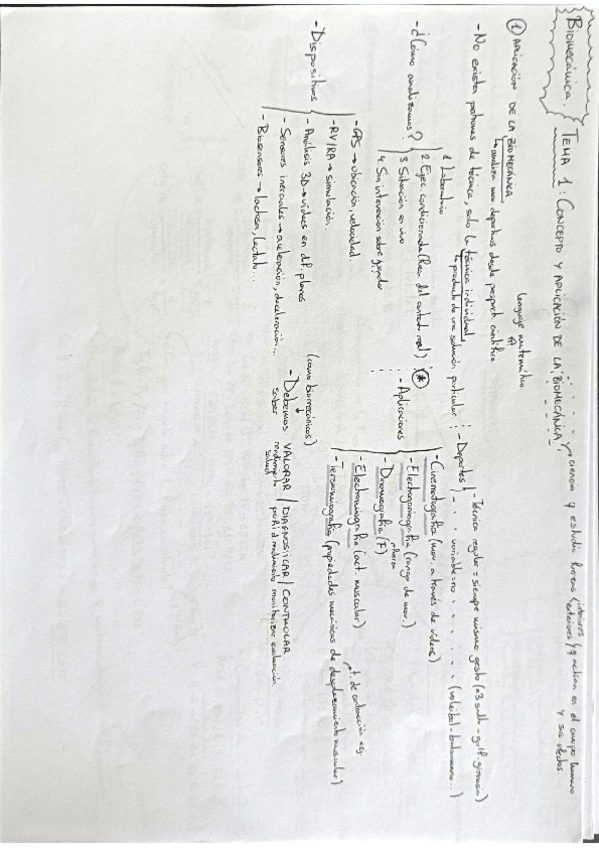 Biomecánica. TEMA 1: CONCEPTO Y APLICACIÓN DE LA BIOMECÁNICA
ciencia q estudia fuerzas (interiores/exteriores) q actúan en el cuerpo humano y sus efectos
Lenguaje matemático
① APLICACIÓN DE LA BIOMECÁNICA
analiza mov. deportivos desde perspect. científica
- No existen patrones de técnica, solo la técnica individual
producto de una solución particular
- ¿Cómo analizamos?
1. Laboratorio
2. Ejec. condicionada (Rec. del contexto real)
3. Situación en vivo
4. Sin intervención sobre ejecutor
- Dispositivos
- GPS → ubicación, velocidad
- RV/RA → simulación.
- Análisis 3D → vídeos en dif. planos
- Sensores inerciales → aceleración, deceleración...
- Biosensores → lactosa, lactato...
- Deportes
- Técnica regular = siempre mismo gesto (salto - golf - gimnasia)
- " " variable = no " " " (voleibol - balonmano...)
- Aplicaciones
- Cinematografía (mov. a través de vídeos)
- Electrogoniografía (rango de mov.)
- Dinamografía (F)
fuerza
- Electromiografía (act. muscular)
- Tensiomiografía (propiedades mecánicas de desplazamiento muscular)
t. de contracción
(como biomecánicos)
- Debemos VALORAR / DIAGNOSTICAR / CONTROLAR
saber rendimiento salud
perfil d rendimiento
monitorizar evaluación